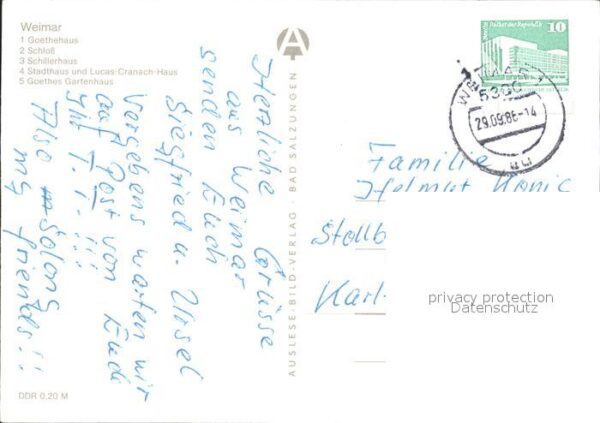 Weimar
1 Goethehaus
2 Schloß
3 Schillerhaus
4 Stadthaus und Lucas-Cranach-Haus
5 Goethes Gartenhaus
Herzliche Grüsse
aus Weimar
senden Euch
Siegfried u. Ursel
Vergebens warten wir
auf Post von Euch
T. T. !!!
Also Solong
my friends!!
DDR 0,20 M
AUSLESE-BILD-VERLAG · BAD SALZUNGEN
10
WEIMAR 1
5300
29.09.86-14
Familie
Helmut König
Stollb
Karl-
privacy protection
Datenschutz